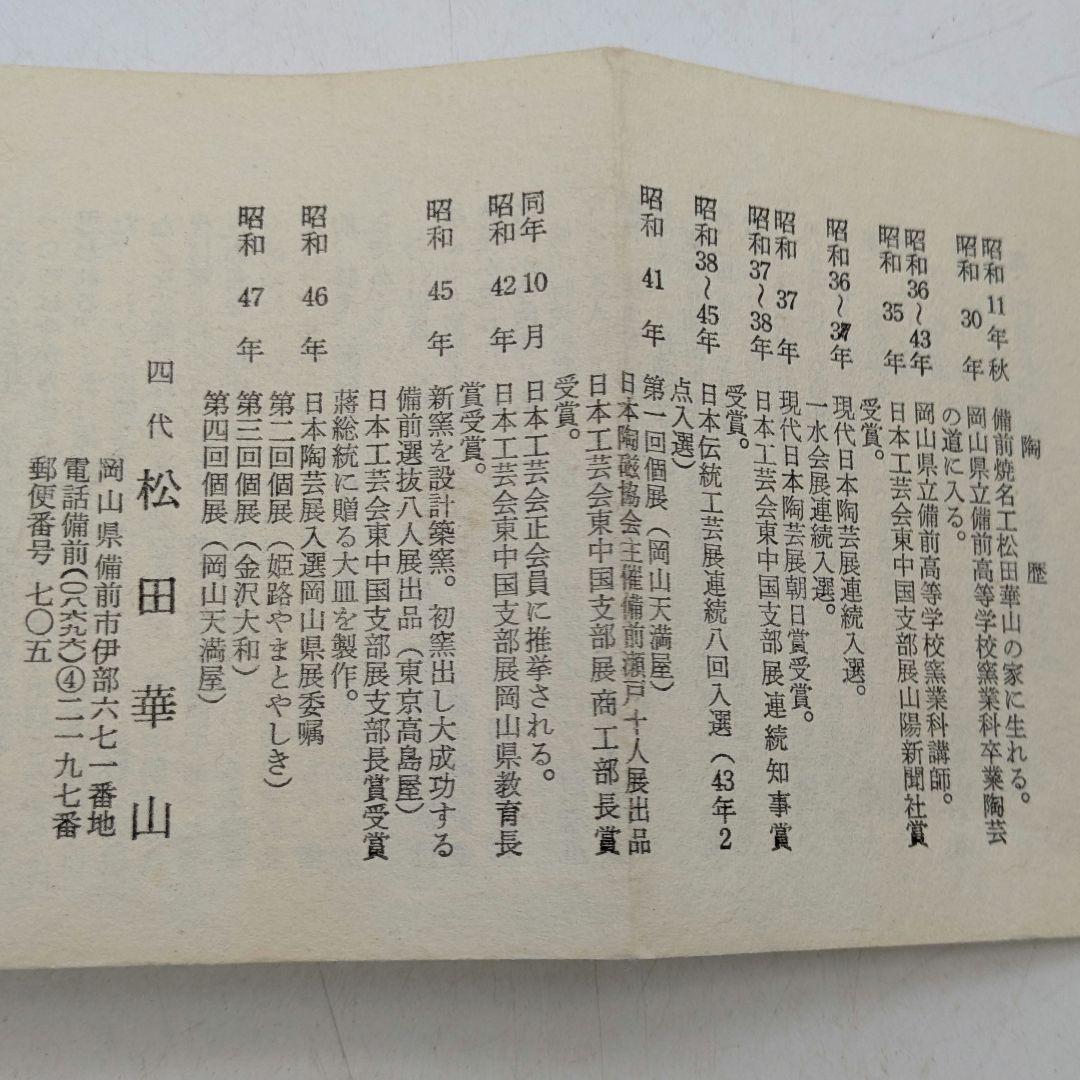 陶歴
昭和11年秋 備前焼名工松田華山の家に生れる。
昭和30年 岡山県立備前高等学校窯業科卒業陶芸
の道に入る。
昭和36～43年 岡山県立備前高等学校窯業科講師。
昭和35年 日本工芸会東中国支部展山陽新聞社賞
受賞。
昭和36～37年 現代日本陶芸展連続入選。
一水会展連続入選。
昭和37年 現代日本陶芸展朝日賞受賞。
昭和37～38年 日本工芸会東中国支部展連続知事賞
受賞。
昭和38～45年 日本伝統工芸展連続八回入選（43年2
点入選）
昭和41年 第一回個展（岡山天満屋）
日本陶磁協会主催備前瀬戸十人展出品
日本工芸会東中国支部展商工部長賞
受賞。
同年10月 日本工芸会正会員に推挙される。
昭和42年 日本工芸会東中国支部展岡山県教育長
賞受賞。
昭和45年 新窯を設計築窯。初窯出し大成功する
備前選抜八人展出品（東京高島屋）
日本工芸会東中国支部展支部長賞受賞
蔣総統に贈る大皿を製作。
昭和46年 日本陶芸展入選岡山県展委嘱
第二回個展（姫路やまとやしき）
昭和47年 第三回個展（金沢大和）
第四回個展（岡山天満屋）
四代 松田華山
岡山県備前市伊部六七一番地
電話備前（〇八六九六）④二一九七番
郵便番号 七〇五